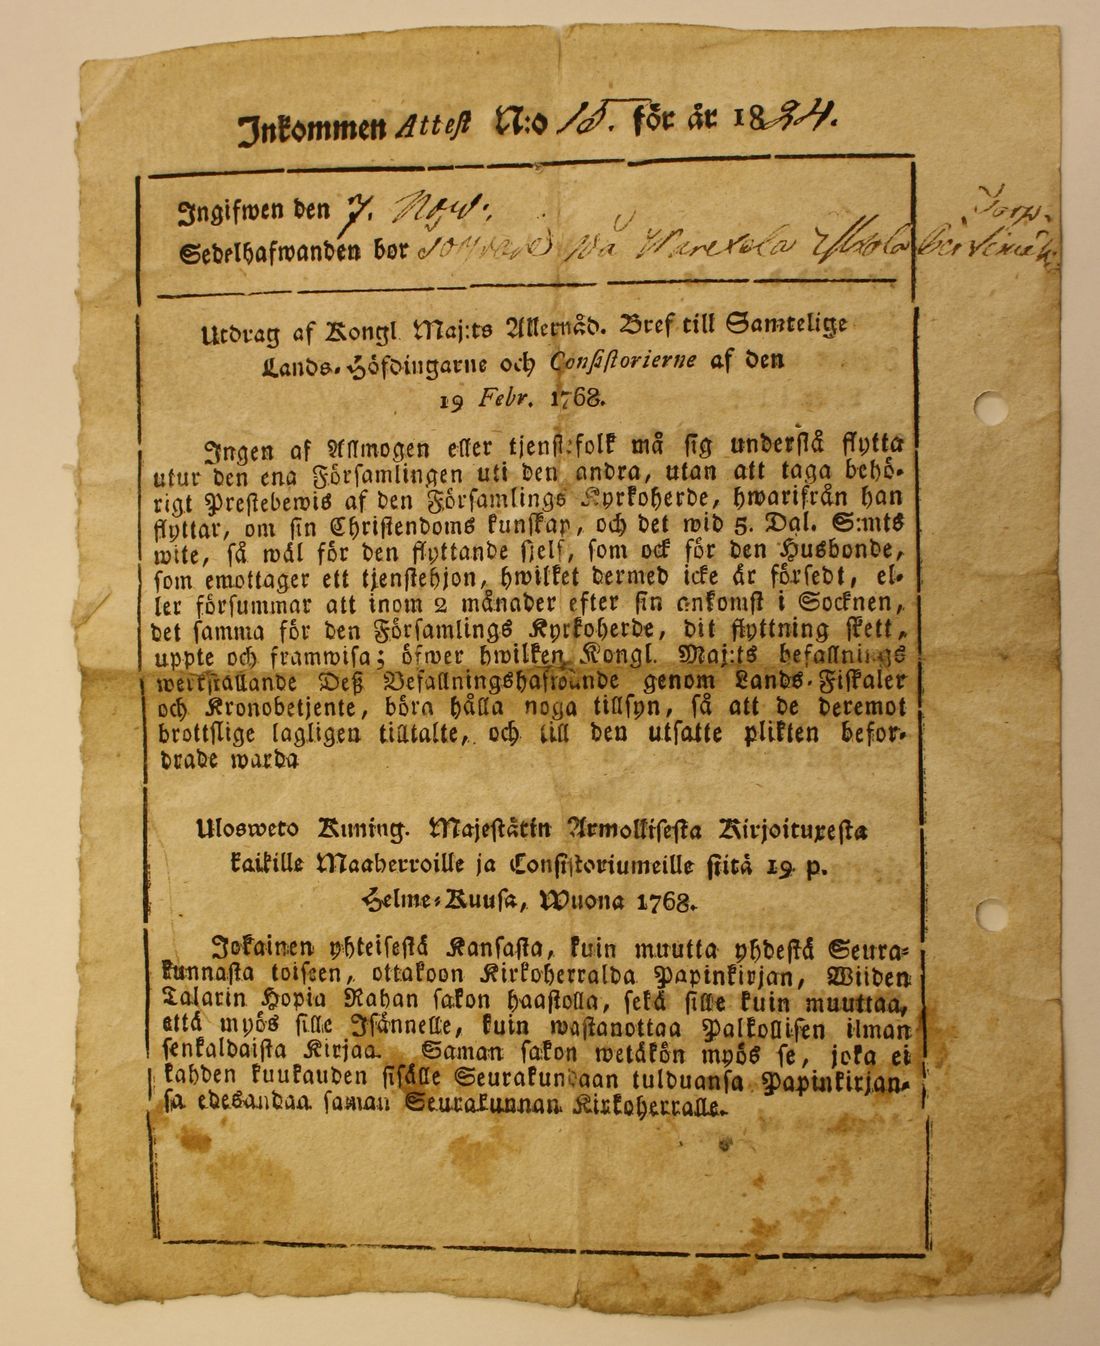 Inkommen Attest N:o 15. för år 1824.
Ingifwen den 7. Nov:
Sedelhafwanden bor på
Utdrag af Kongl Maj:ts Allernåd. Bref till Samtelige
Lands-Höfdingarne och Consistorierne af den
19 Febr. 1768.
Ingen af Allmogen eller tjenst:folk må sig understå flytta
utur den ena Församlingen uti den andra, utan att taga behö-
rigt Prestebewis af den Församlings Kyrkoherde, hwarifrån han
flyttar, om sin Christendoms kunskap, och det wid 5. Dal. S:mts
wite, så wäl för den flyttande sjelf, som ock för den Husbonde,
som emottager ett tjenstehjon, hwilket dermed icke är försedt, el-
ler försummar att inom 2 månader efter sin ankomst i Socknen,
det samma för den Församlings Kyrkoherde, dit flyttning skett,
uppte och framwisa; öfwer hwilken Kongl. Maj:ts befallnings
werkställande Deß Befallningshafwande genom Lands-Fiskaler
och Kronobetjente, böra hålla noga tillsyn, så att de deremot
brottslige lagligen tilltalte, och till den utsatte plikten befor-
drade warda
Ulosweto Kuning. Majestätin Armollisesta Kirjoituxesta
kaikille Maaherroille ja Consistoriumeille siitä 19 p.
Helme-Kuusa, Wuona 1768.
Jokainen yhteisestä Kansasta, kuin muutta yhdestä Seura-
kunnasta toiseen, ottakoon Kirkoherralda Papinkirjan, Wiiden
Talarin Hopia Rahan sakon haastolla, sekä sille kuin muuttaa,
että myös sille Isännelle, kuin wastanottaa Palkollisen ilman
senkaldaista Kirjaa. Saman sakon wetäkön myös se, joka ei
kahden kuukauden sisälle Seurakundaan tulduansa Papinkirjan-
sa edesandaa saman Seurakunnan Kirkoherralle.